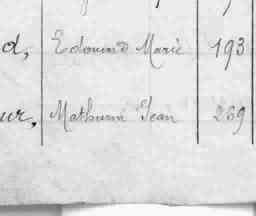 d, Edouard Marie 193
ur, Mathurin Jean 269